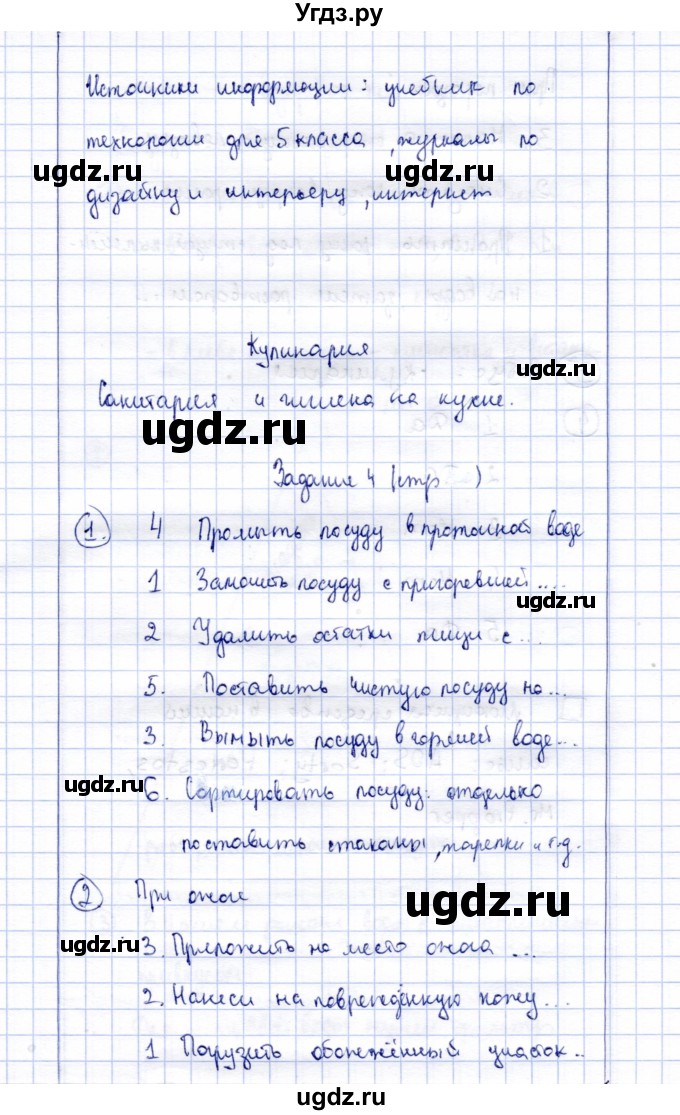 Угдз.ру
Источники информации: учебник по
технологии для 5 класса, журналы по
ugdz.ru
ugdz.ru
дизайну и интерьеру, интернет
Кулинария
ugdz.ru
Санитария и гигиена на кухне.
ugdz.ru
Задания 4 (стр )
1. 4 Промыть посуду в проточной воде
1 Замочить посуду с пригоревшей ....
ugdz.ru
2 Удалить остатки пищи с ...
5. Поставить чистую посуду на ...
3. Вымыть посуду в горячей воде...
ugdz.ru
6. Сортировать посуду: отдельно
поставить стаканы, тарелки и т.д.
2 При ожоге
ugdz.ru
ugdz.ru
3. Приложить на место ожога ...
2. Нанеси на повреждённую кожу ...
1 Погрузить обожжённый участок ..
ugdz.ru